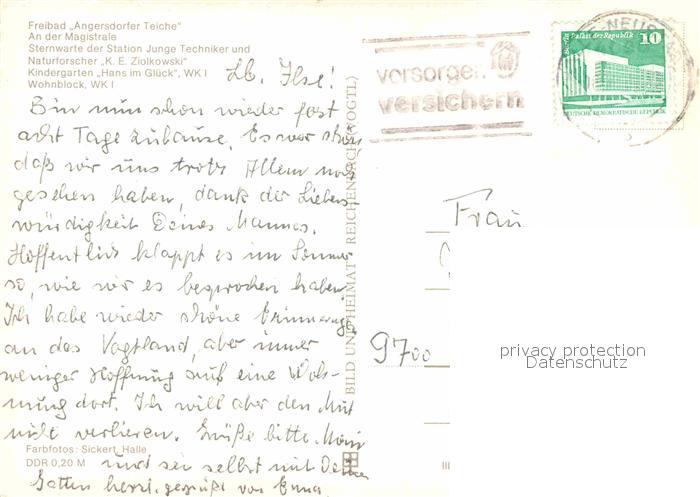 Freibad „Angersdorfer Teiche"
An der Magistrale
Sternwarte der Station Junge Techniker und
Naturforscher „K. E. Ziolkowski"
Kindergarten „Hans im Glück", WK I
Wohnblock, WK I
Lb. Ilse!
Bin nun schon wieder fast
acht Tage zuhause. Es war schön
daß wir uns trotz Allem noch
gesehen haben, dank der Liebens-
würdigkeit Deines Mannes.
Hoffentlich klappt es im Sommer
so, wie wir es besprochen haben.
Ich habe wieder schöne Erinnerungen
an das Vogtland, aber immer
weniger Hoffnung auf eine Woh-
nung dort. Ich will aber den Mut
nicht verlieren. Grüße bitte
und sei selbst mit Deinem
Gatten herzl. gegrüßt von Erna
Farbfotos: Sickert, Halle
DDR 0,20 M
BILD UND HEIMAT REICHENBACH (VOGTL)
III
vorsorgen
versichern
Berlin Palast der Republik
10
DEUTSCHE DEMOKRATISCHE REPUBLIK
Frau
9700
privacy protection
Datenschutz